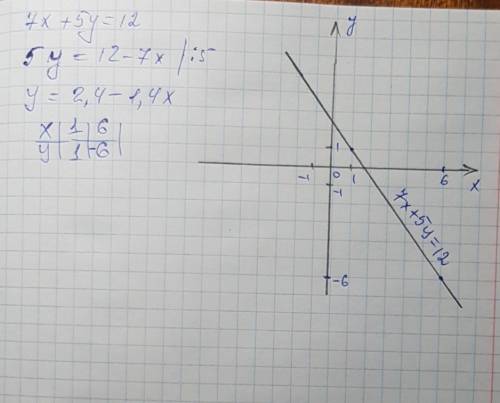 7x + 5y = 12
5y = 12 - 7x | :5
y = 2,4 - 1,4x
x | 1 | 6 |
y | 1 | -6 |
y
1
-1 0 1 6 x
-1
7x + 5y = 12
-6